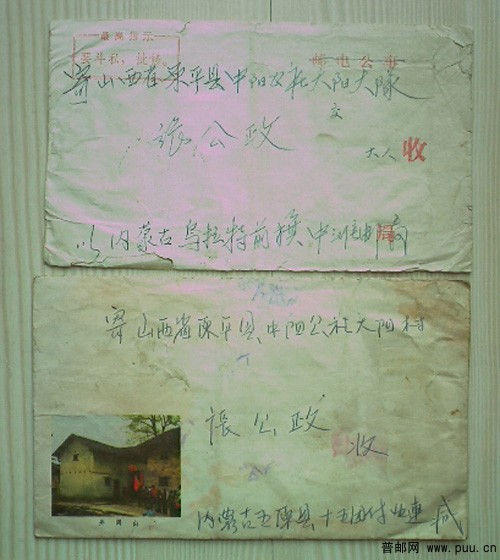 最高指示
要斗私，批修。
邮电公事
寄山西省原平县中阳公社大阳大隊
交
張公政
大人 收
内蒙古乌拉特前旗中滩邮局
寄山西省原平县中阳公社大阳村
張公政
收
井冈山
内蒙古五原县十五团
普邮网 www.puu.cn